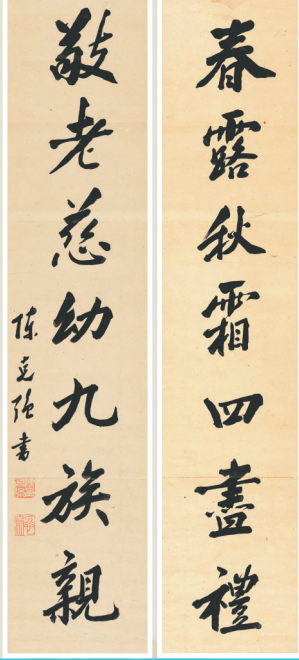 春露秋霜四盡禮
敬老慈幼九族親
陳克強書